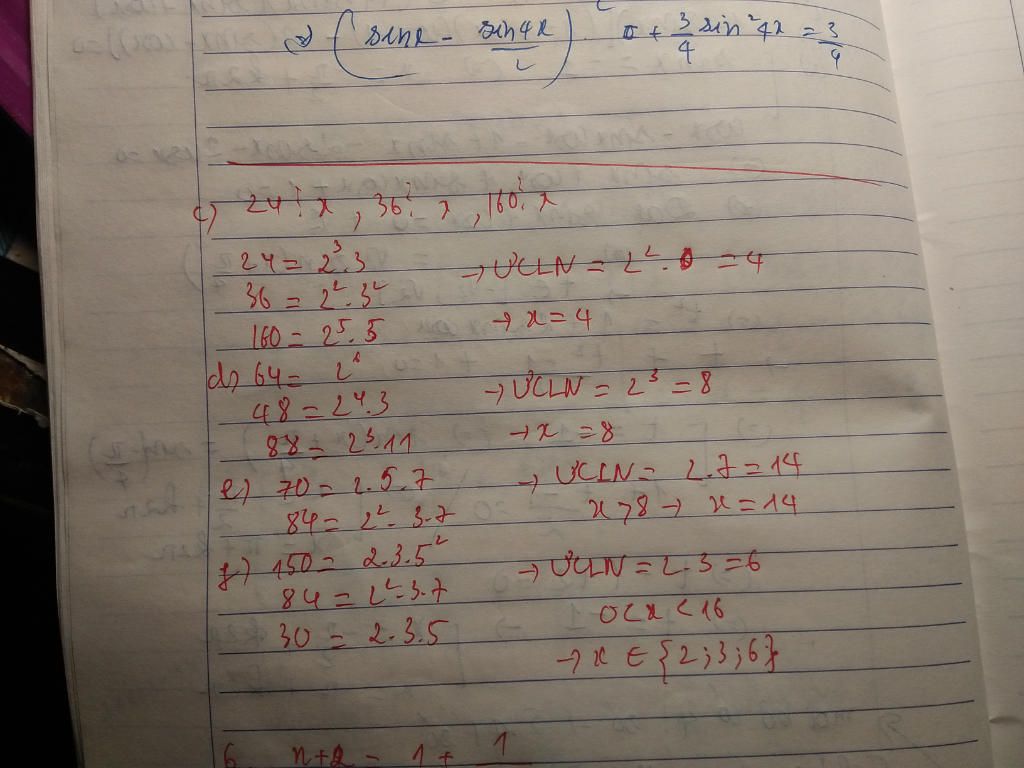 => (sin x - sin4x/2) 0 + 3/4 sin²4x = 3/4
c) 24 ⋮ x , 36 ⋮ x , 160 ⋮ x
24 = 2³.3 → ƯCLN = 2². = 4
36 = 2².3²
160 = 2⁵.5 → x = 4
d) 64 = 2⁶
48 = 2⁴.3 → ƯCLN = 2³ = 8
88 = 2³.11 → x = 8
e) 70 = 2.5.7 → ƯCLN = 2.7 = 14
84 = 2².3.7 x > 8 → x = 14
f) 150 = 2.3.5² → ƯCLN = 2.3 = 6
84 = 2².3.7 0 < x < 16
30 = 2.3.5
→ x ∈ {2;3;6}
6 n+2 = 1 + 1